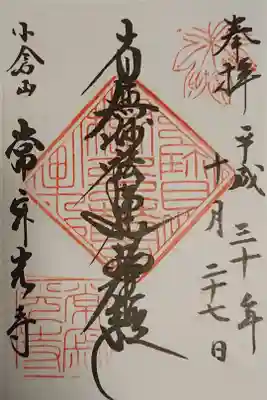 奉拝
平成三十年
十月二十七日
南無妙法蓮華経
小倉山
常寂光寺